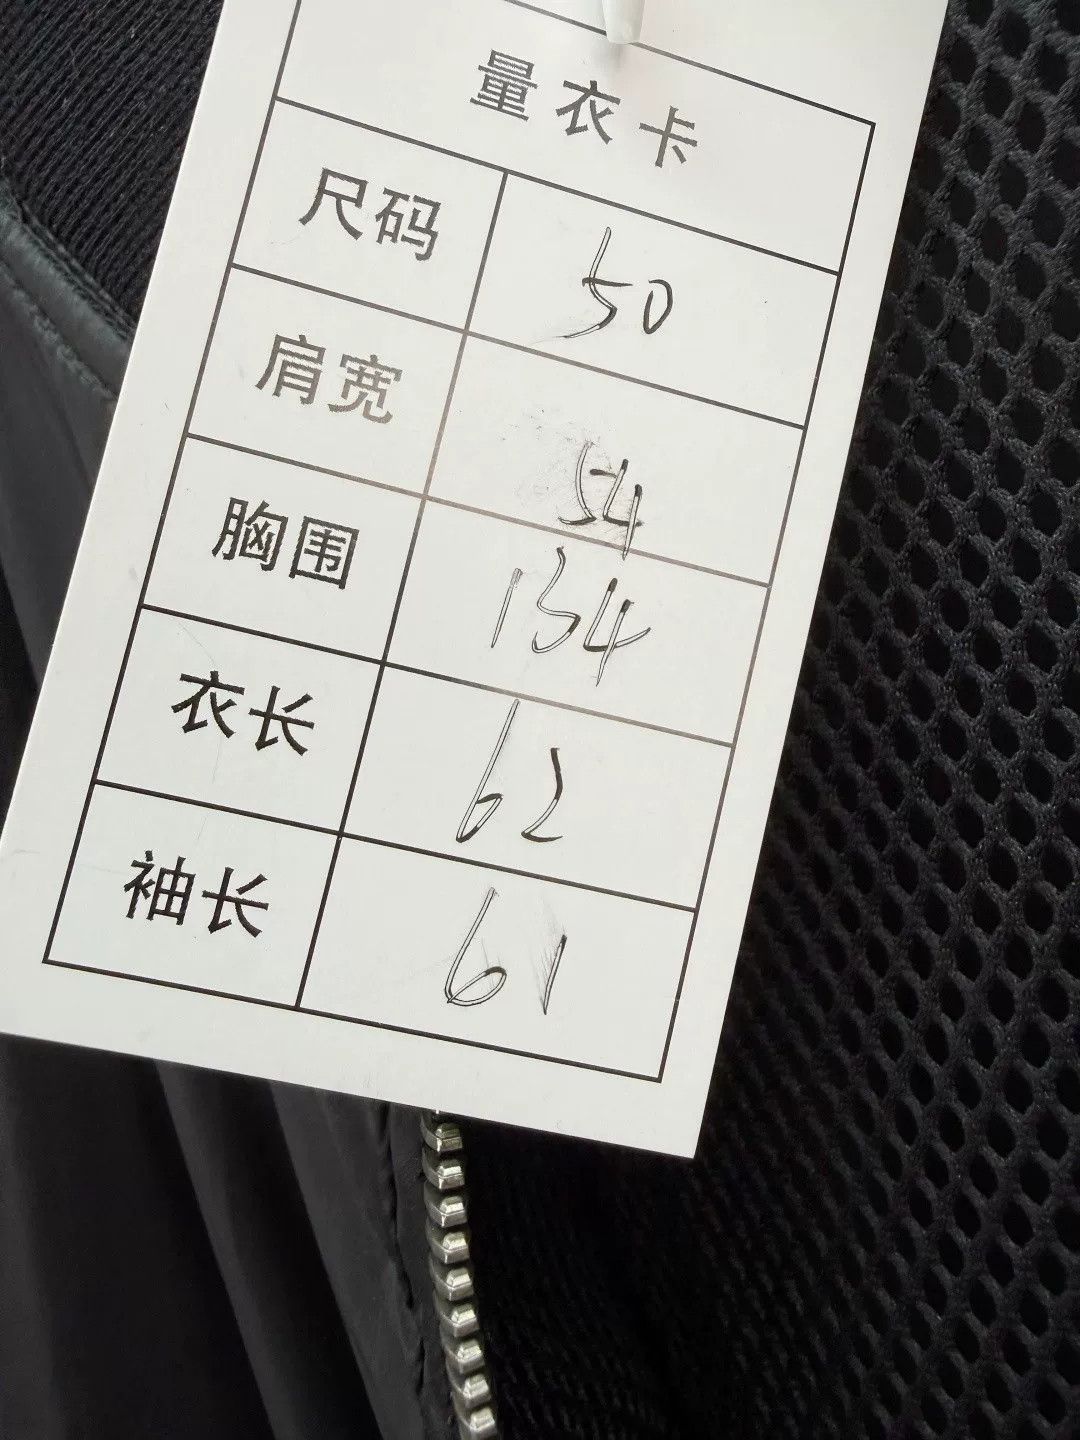 量衣卡
尺码 50
肩宽 54
胸围 134
衣长 62
袖长 61